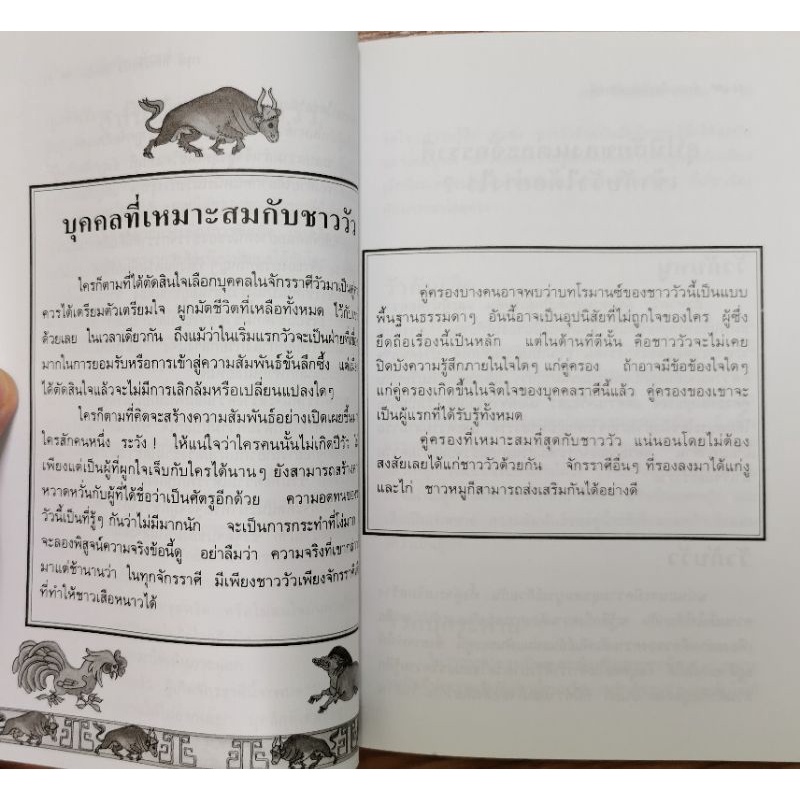 บุคคลที่เหมาะสมกับชาววัว
ใครก็ตามที่ได้ตัดสินใจเลือกบุคคลในจักรราศีวัวมาเป็นคู่
ควรได้เตรียมตัวเตรียมใจ ผูกมัดชีวิตที่เหลือทั้งหมด ไว้กับ
ด้วยเลย ในเวลาเดียวกัน ถึงแม้ว่าในเริ่มแรกวัวจะเป็นฝ่าย
มากในการยอมรับหรือการเข้าสู่ความสัมพันธ์ขั้นลึกซึ้ง แต่
ได้ตัดสินใจแล้วจะไม่มีการเลิกล้มหรือเปลี่ยนแปลงใดๆ
ใครก็ตามที่คิดจะสร้างความสัมพันธ์อย่างเปิดเผยขึ้น
ใครสักคนหนึ่ง ระวัง! ให้แน่ใจว่าใครคนนั้นไม่เกิดปีวัว
เพียงแต่เป็นผู้ที่ผูกใจเจ็บกับใครได้นานๆ ยังสามารถสร้าง
หวาดหวั่นกับผู้ที่ได้ชื่อว่าเป็นศัตรูอีกด้วย ความอดทนของ
วัวนี้เป็นที่รู้ๆ กันว่าไม่มีมากนัก จะเป็นการกระทำที่โง่มาก
จะลองพิสูจน์ความจริงข้อนี้ดู อย่าลืมว่า ความจริงที่
มาแต่ช้านานว่า ในทุกจักรราศี มีเพียงชาววัวเพียงจักรราศี
ที่ทำให้ชาวเสือหนาวได้
คู่ครองบางคนอาจพบว่าบทโรมานซ์ของชาววัวนี้เป็นแบบ
พื้นฐานธรรมดาๆ อันนี้อาจเป็นอุปนิสัยที่ไม่ถูกใจของใคร ผู้ซึ่ง
ยึดถือเรื่องนี้เป็นหลัก แต่ในด้านที่ดีนั้น คือชาววัวจะไม่เคย
ปิดบังความรู้สึกภายในใจใดๆ แก่คู่ครอง ถ้าอาจมีข้อข้องใจใดๆ
แก่คู่ครองเกิดขึ้นในจิตใจของบุคคลราศีนี้แล้ว คู่ครองของเขาจะ
เป็นผู้แรกที่ได้รับรู้ทั้งหมด
คู่ครองที่เหมาะสมที่สุดกับชาววัว แน่นอนโดยไม่ต้อง
สงสัยเลยได้แก่ชาววัวด้วยกัน จักรราศีอื่นๆ ที่รองลงมาได้แก่งู
และไก่ ชาวหมูก็สามารถส่งเสริมกันได้อย่างดี